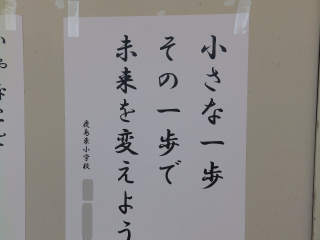 小さな一歩
その一歩で
未来を変えよう
鹿島東小学校